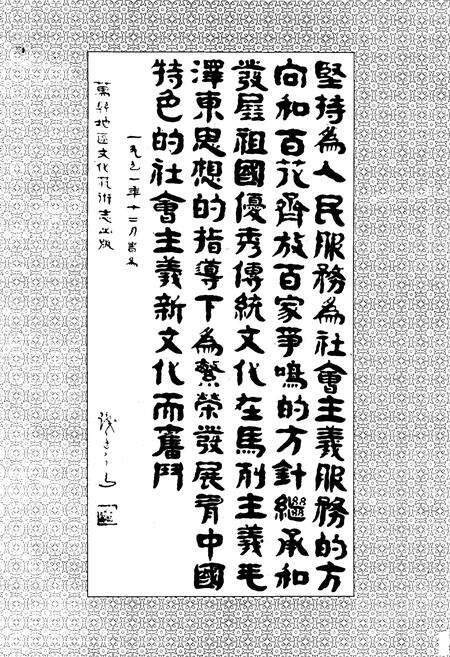 堅持為人民服務為社會主義服務的方
向和百花齊放百家爭鳴的方針繼承和
發展祖國優秀傳統文化在馬列主義毛
澤東思想的指導下為繁榮發展有中國
特色的社會主義新文化而奮鬥
一九九一年十二月書為
萬县地区文化艺術志出版